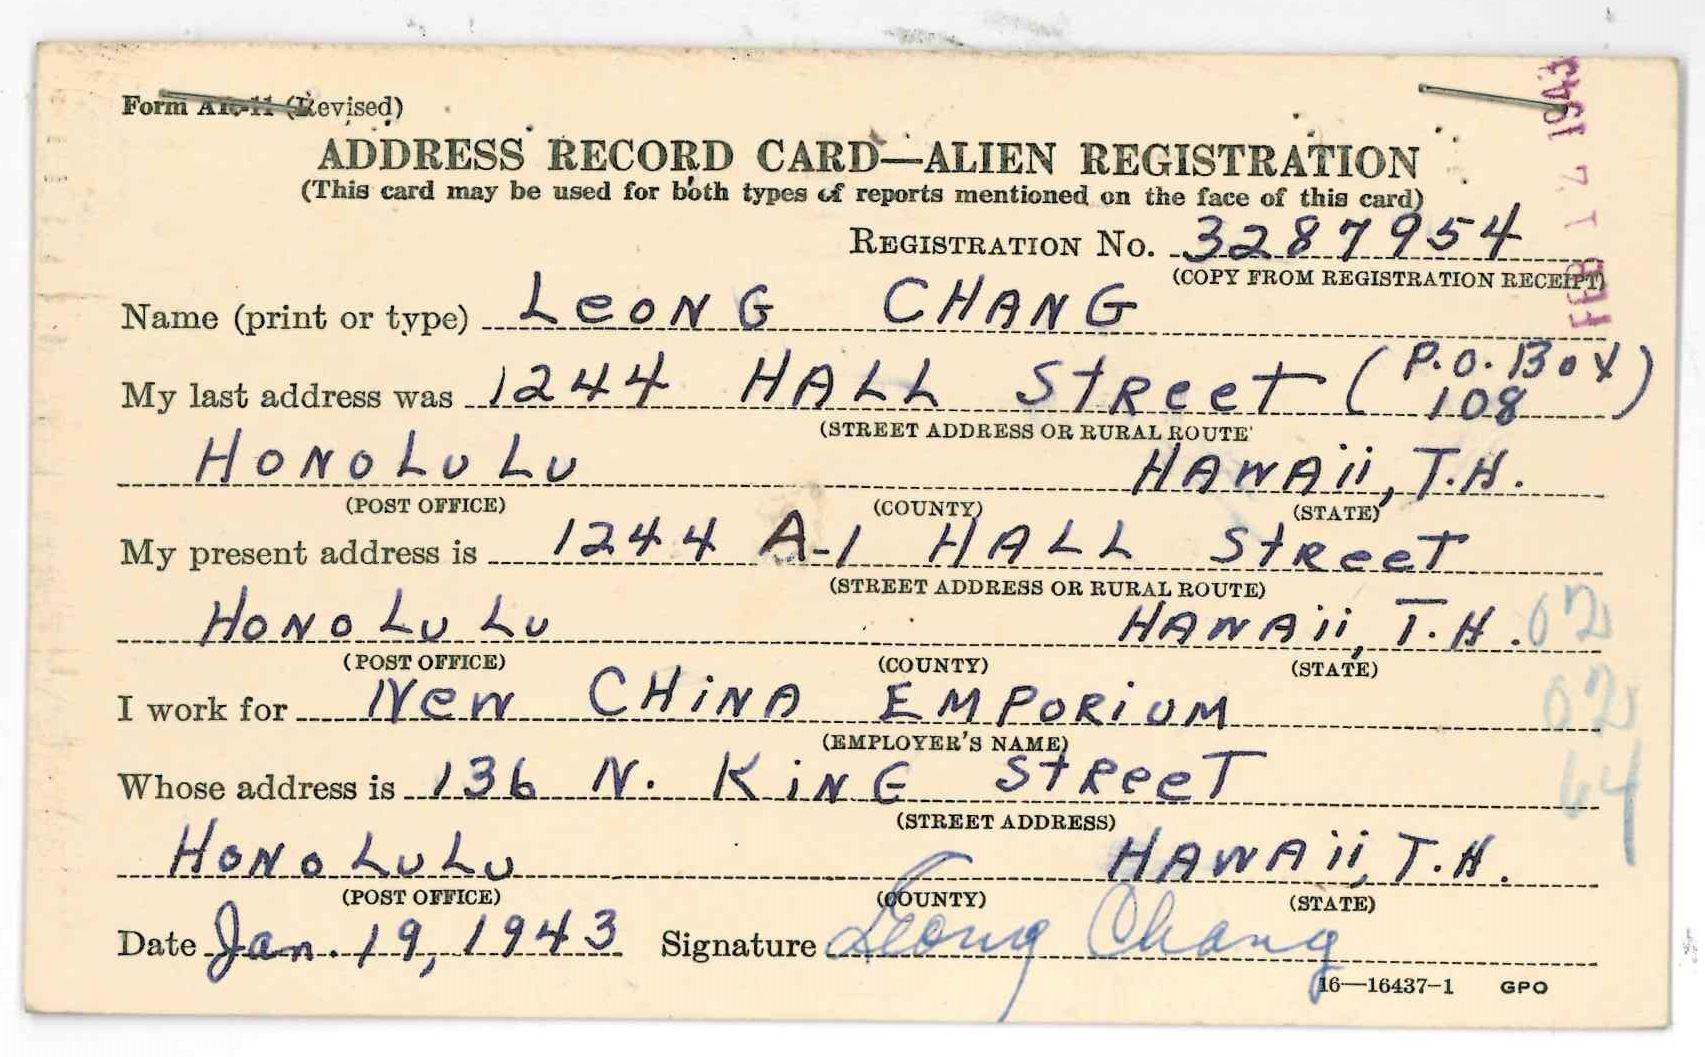 Form AR-11 (Revised)
ADDRESS RECORD CARD—ALIEN REGISTRATION
(This card may be used for both types of reports mentioned on the face of this card)
REGISTRATION No. 3287954
(COPY FROM REGISTRATION RECEIPT)
FEB 12 1943
Name (print or type) LeONG CHANG
My last address was 1244 HALL StReet (P.O. Box 108)
(STREET ADDRESS OR RURAL ROUTE)
HONOLULU HAWAii, T.H.
(POST OFFICE) (COUNTY) (STATE)
My present address is 1244 A-1 HALL StReeT
(STREET ADDRESS OR RURAL ROUTE)
HONOLULU HAWAii, T.H. 02
(POST OFFICE) (COUNTY) (STATE)
I work for NeW CHiNA EMPORiUM 02
(EMPLOYER'S NAME)
Whose address is 136 N. KiNG StReeT 64
(STREET ADDRESS)
HONOLULU HAWAii, T.H.
(POST OFFICE) (COUNTY) (STATE)
Date Jan. 19, 1943 Signature Leong Chang
16—16437-1 GPO